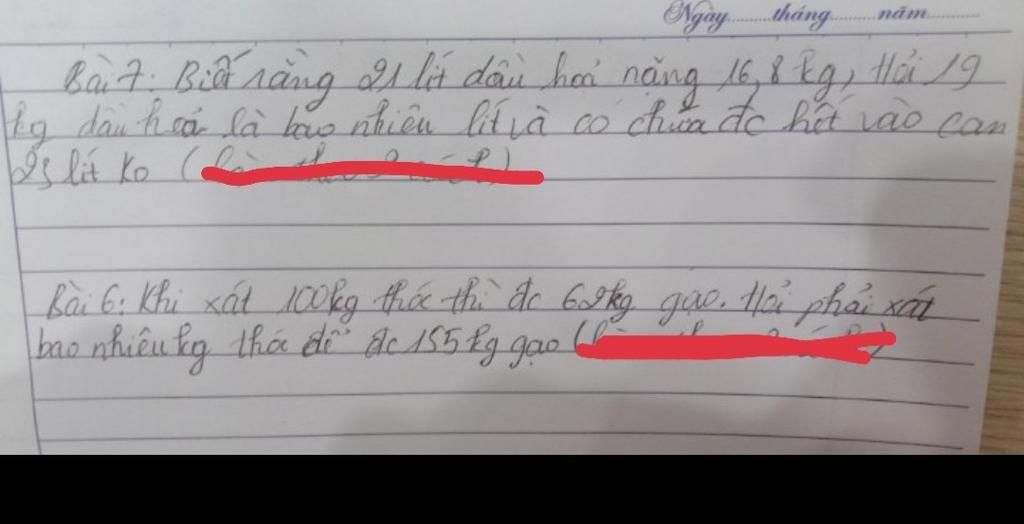 Ngày.........tháng.........năm..........
Bài 7: Biết rằng 21 lít dầu hoả nặng 16,8 kg, Hỏi 19
kg dầu hoả là bao nhiêu lít và có chứa đc hết vào can
23 lít ko (
Bài 6: Khi xát 100kg thóc thì đc 62kg gạo. Hỏi phải xát
bao nhiêu kg thóc để đc 155kg gạo (